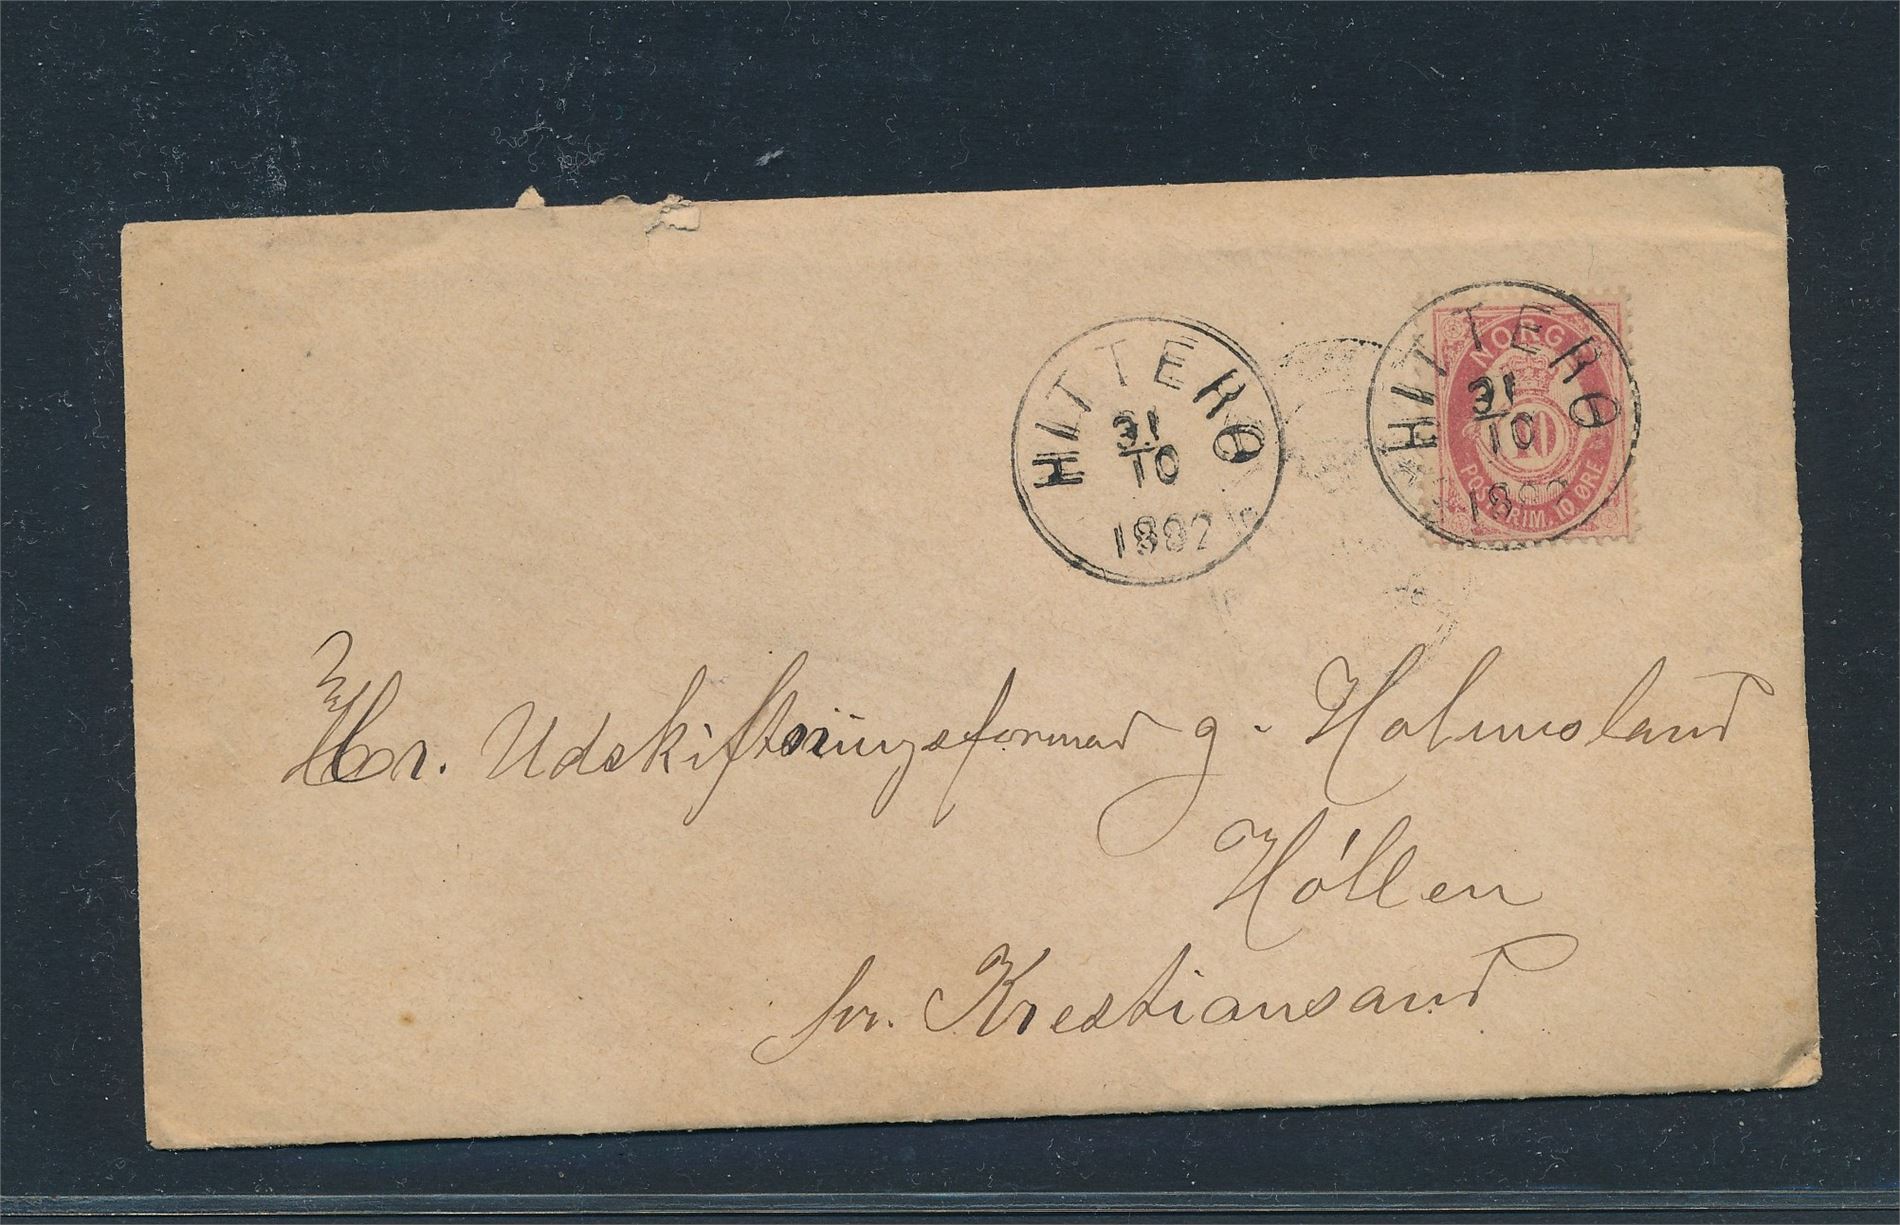 HITTERØ
31
10
1892
HITTERØ
31
10
1892
NORGE
10
POSTFRIM. 10 ØRE
Hr. Udskiftningsformad g. Holmesland
Höllen
pr. Krestiansand